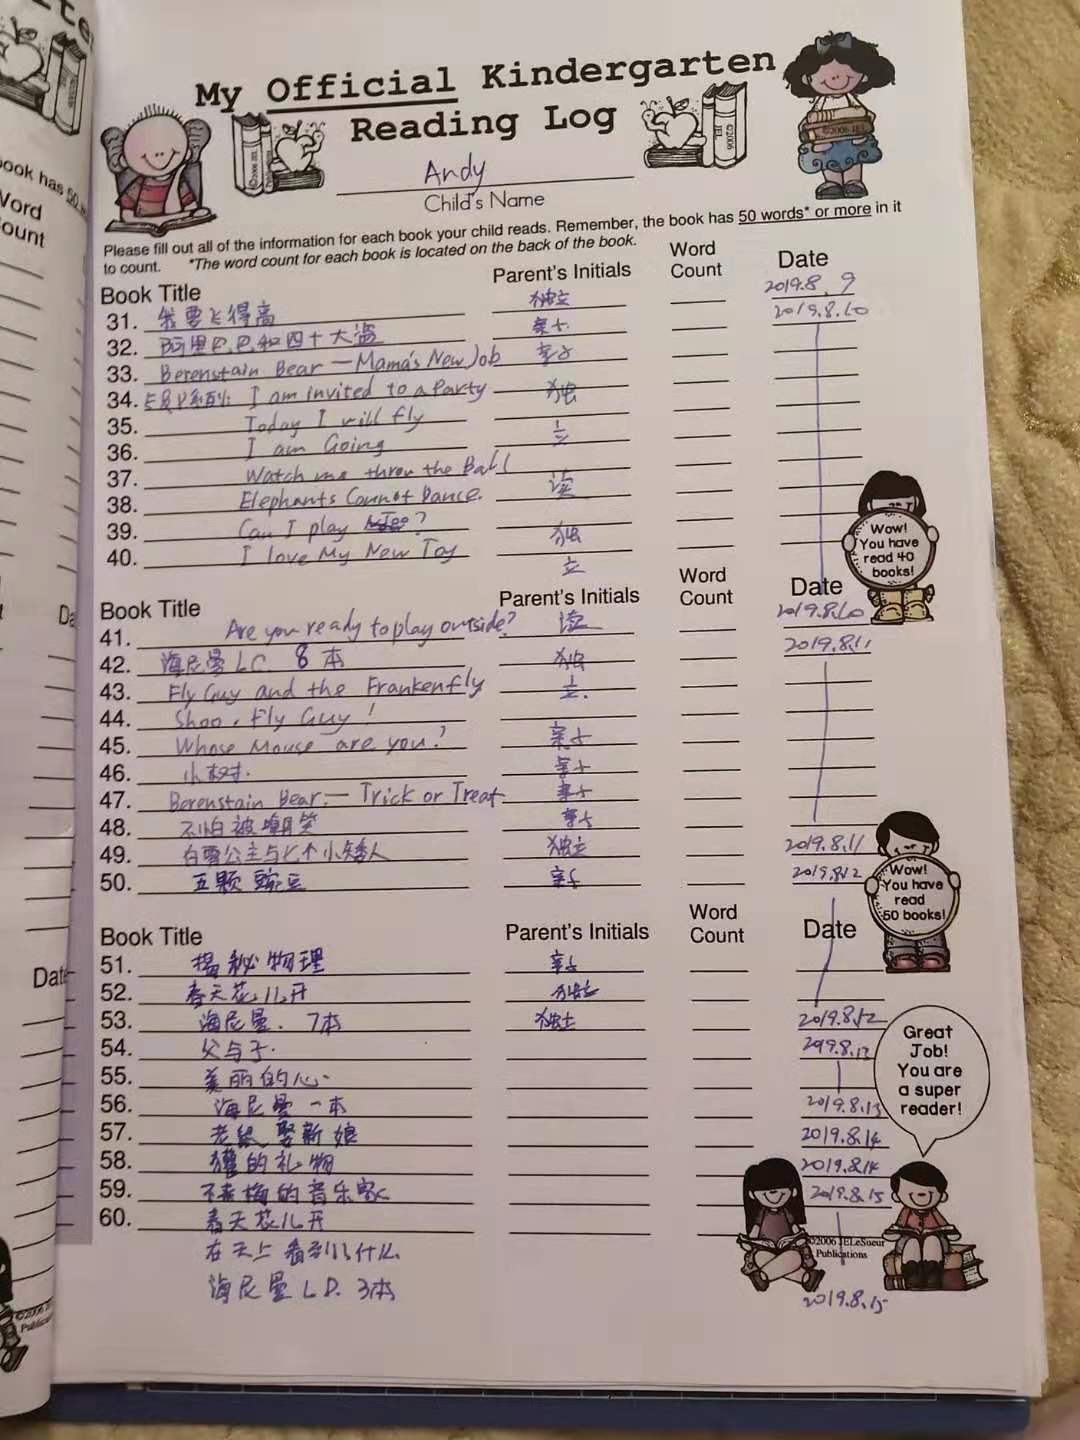 My Official Kindergarten
Reading Log
Andy
Child's Name
Please fill out all of the information for each book your child reads. Remember, the book has 50 words* or more in it
to count. *The word count for each book is located on the back of the book.
Book Title Parent's Initials Word Count Date
2019.8.9
31. 我要飞得高 独立 2019.8.10
32. 阿里巴巴和四十大盗 亲子
33. Berenstain Bear — Mama's New Job 亲子
34. I am invited to a Party 独
35. Today I will fly
36. I am Going 立
37. Watch me throw the Ball
38. Elephants Cannot Dance. 读
39. Can I play ?
40. I love My New Toy 独
立
Wow! You have read 40 books!
Book Title Parent's Initials Word Count Date
2019.8.10
41. Are you ready to play outside? 读
42. 海尼曼 LC 8本 独 2019.8.11
43. Fly Guy and the Frankenfly 立.
44. Shoo, Fly Guy!
45. Whose Mouse are you? 亲子
46. 小树. 亲子
47. Berenstain Bear — Trick or Treat 亲子
48. 不怕被嘲笑 亲子
49. 白雪公主与七个小矮人 独立 2019.8.11
50. 五颗豌豆 亲子 2019.8.12
Wow! You have read 50 books!
Book Title Parent's Initials Word Count Date
51. 揭秘物理 亲子
52. 春天花儿开 独立
53. 海尼曼. 7本 独立 2019.8.12
54. 父与子. 2019.8.13
55. 美丽的心.
56. 海尼曼一本 2019.8.13
57. 老鼠娶新娘 2019.8.14
58. 獾的礼物 2019.8.14
59. 不来梅的音乐家 2019.8.15
60. 春天花儿开
在天上看到了什么
海尼曼 LD. 3本 2019.8.15
Great Job! You are a super reader!
©2006 JELeSueur
Publications
ook has
Word
ount
Date